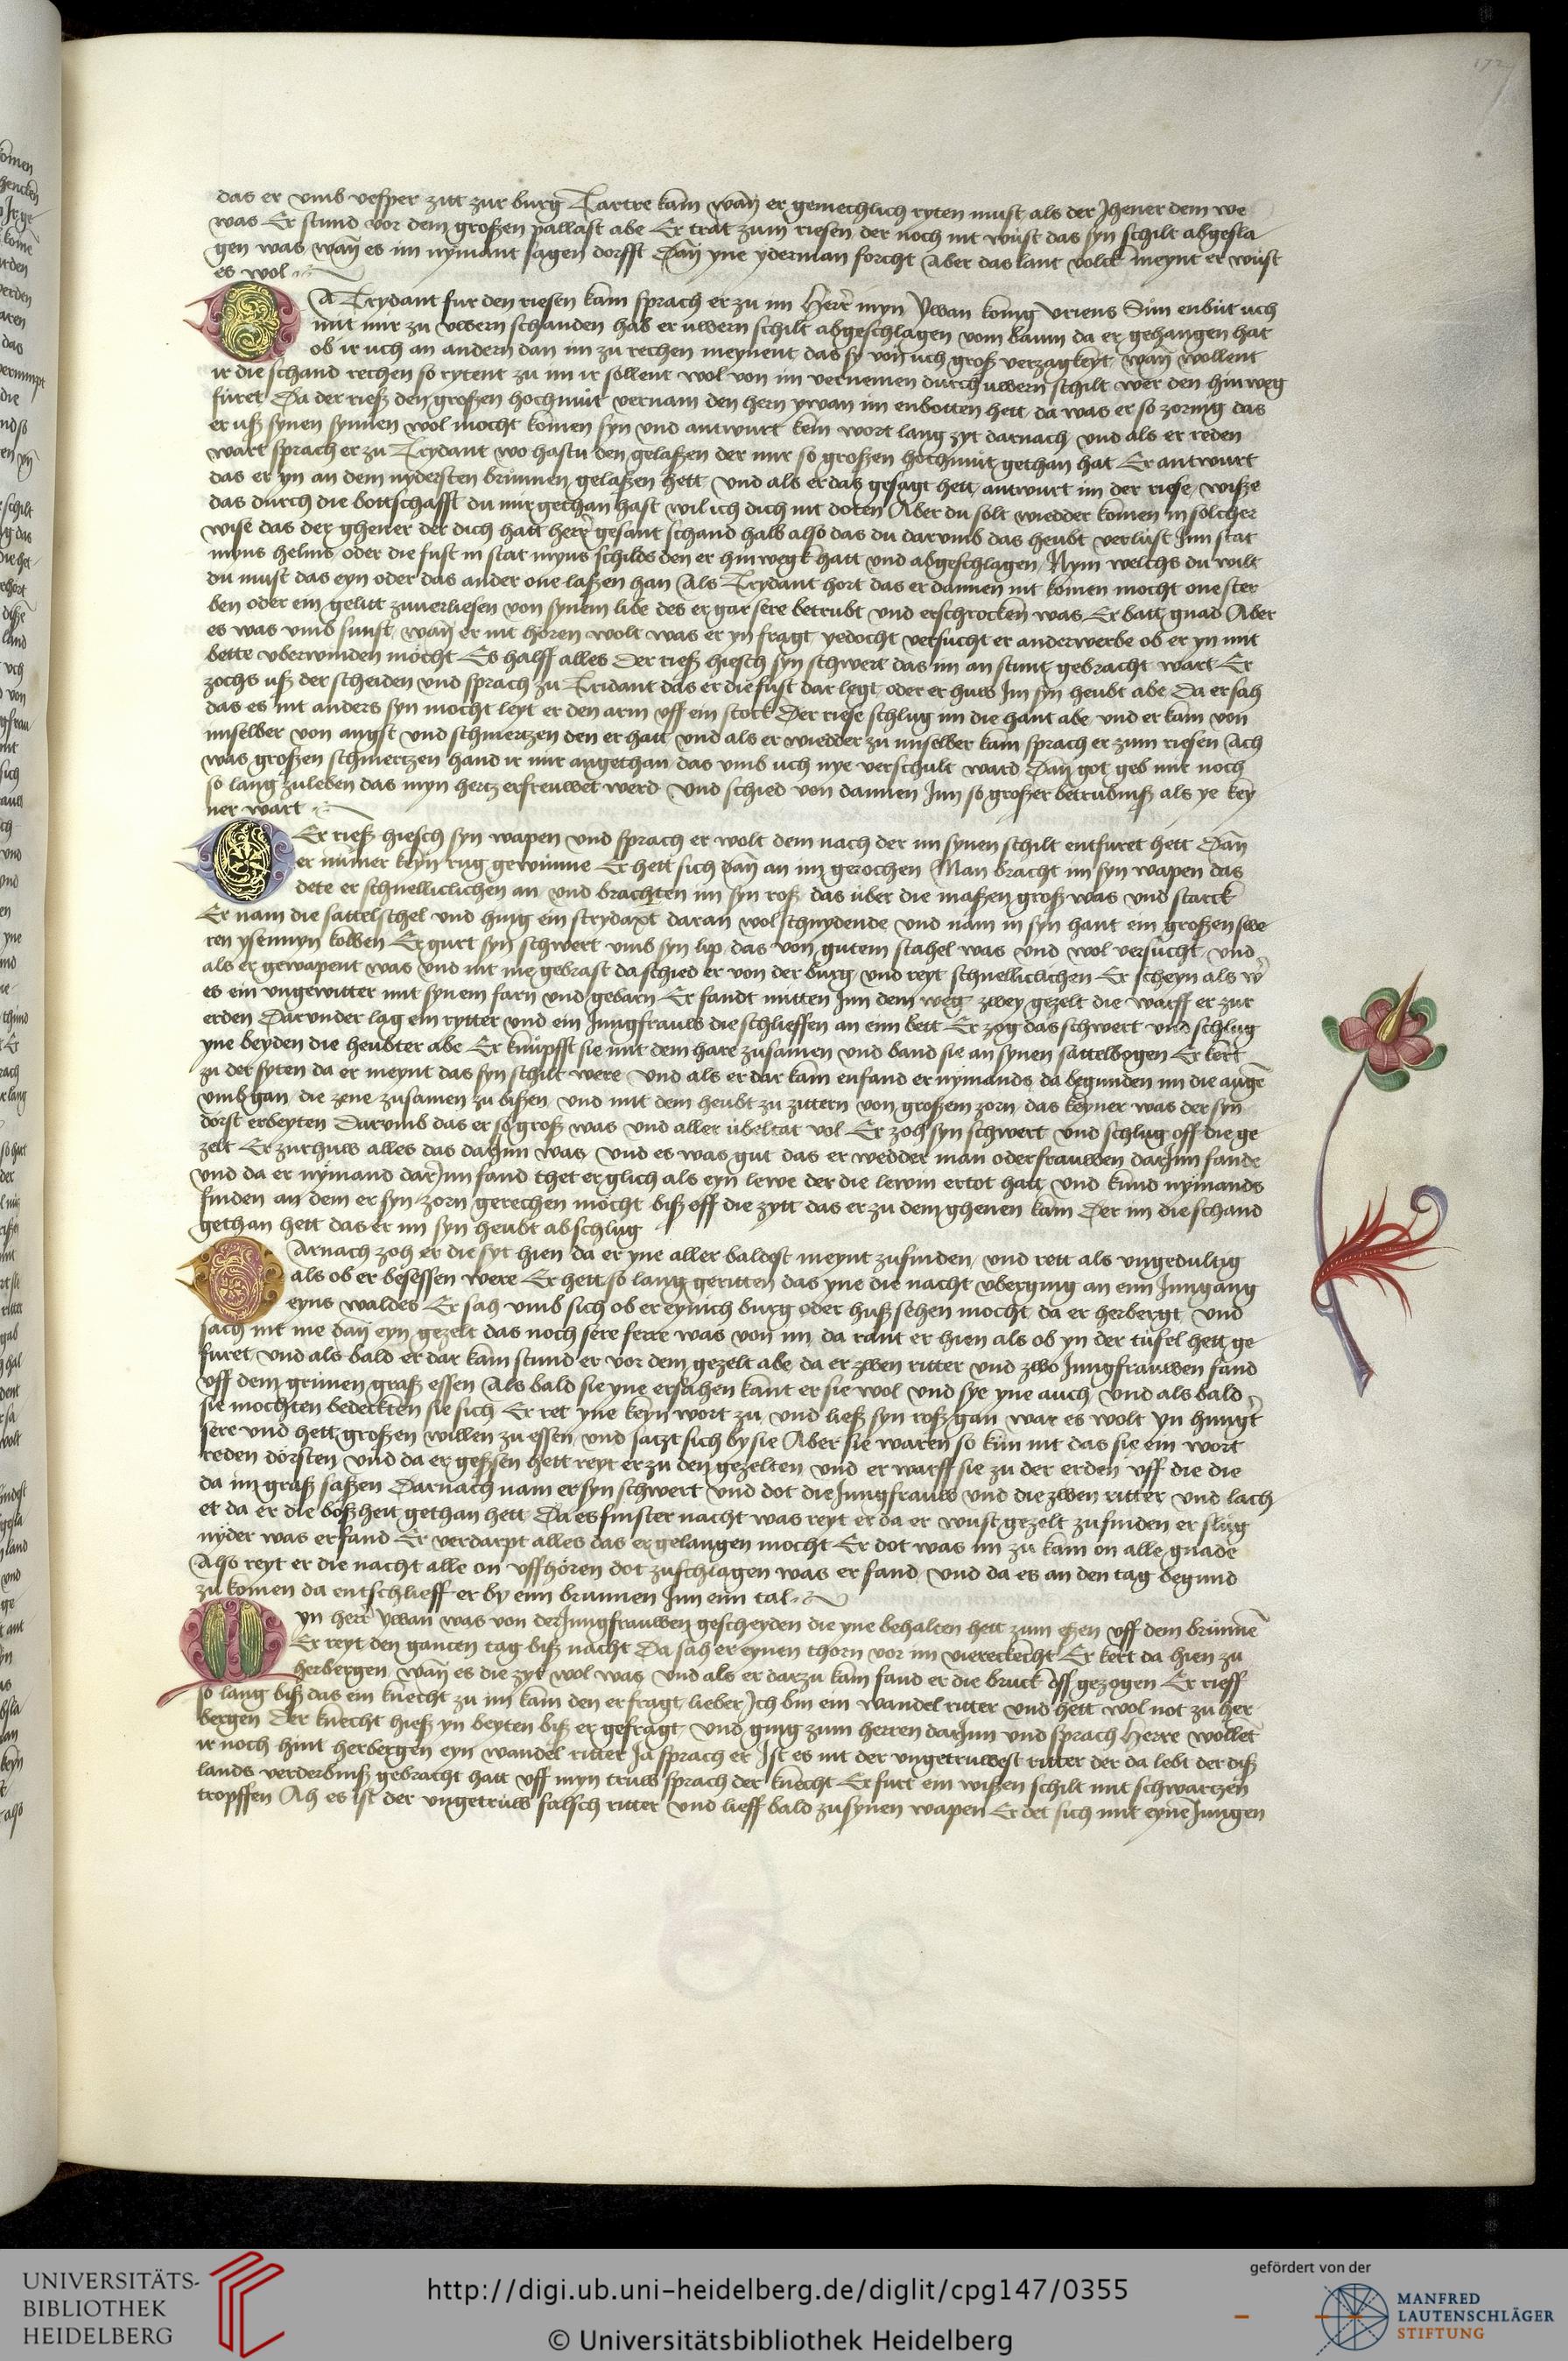 172
das er vmb vesper zitt zur burg Tartre kam wañ er gemechlich ryten must als der Jhener dem we
was Er stund vor dem großen pallast abe Er trat zum riesen der noch nit wúst das syn schilt abgesla
gen was wañ es im nymant sagen dorfft Dañ yne yderman forcht Aber das lant volck meynt er wúst
es wol
DA Trydant fur den riesen kam sprach er zu im Herr myn Ywan konig Vriens Sún enbút uch
mit mir zu uwern schanden hab er uwern schilt abgeschlagen vom baum da er gehangen hat
ob ir uch an andern dan im zu rechen meynent das sy von uch groß verzagkeyt wañ wollent
ir die schand rechen so rytent zu im ir sollent wol von im vernemen durch uwern schilt wer den hinweg
fúret Da der rieß den großen hochmút vernam den hern ywan im enbotten hett da was er so zornig das
er uß synen synnen wol mocht komen syn vnd antwurt kein wort lang zyt darnach vnd als er reden
wart sprach er zu Trydant wo hastu den gelaßen der mir so großen hochmút gethan hat Er antwurt
das er yn an dem nydersten brúnnen gelaßen hett vnd als er das gesagt hett antwurt im der riese wiße
das durch die bottschafft du mir gethan hast wil ich dich nit doten Aber du solt wiedder komen in solcher
wise das der ghener der dich hatt herr gesant schand halb also das du darumb das heubt verlúst Jnn stat
myns helms oder die fust in stat myns schilds den er hinwegk hatt vnd abgeschlagen Nym welchs du wilt
du must das eyn oder das ander one laßen han Als Trydant hort das er dannen nit komen mocht one ster
ben oder ein gelitt zuuerliesen von synem libe des er gar sere betrubt vnd erschrocken was Er batt gnad Aber
es was vmb sunst wañ er nit horen wolt was er yn fragt yedocht versucht er anderwerbe ob er yn mit
bette vberwinden mocht Es halff alles Der rieß hiesch syn schwert das im an stunt gebracht wart Er
zochs uß der scheiden vnd sprach zu Tridant das er die fust dar legt oder er huw Im syn heubt abe Da er sah
das es nit anders syn mocht leyt er den arm vff ein stock Der riese schlug im die hant abe vnd er kam von
imselber von angst vnd schmertzen den er hatt vnd als er wiedder zu imselber kam sprach er zum riesen Ach
was großen schmertzen hand ir mir angethan das vmb uch nye verschult ward Dañ got geb mir noch
so lang zuleben das myn hertz erfreuwet werd Vnd schied von dannen Jnn so großer betrúbniß als ye key
ner wart
DEr rieß hiesch syn wapen vnd sprach er wolt dem nach der im synen schilt entfuret hett Dañ
er nimer keyn rug gewinne Er hett sich dañ an im gerochen Man bracht im syn wapen das
dete er schnelliclichen an vnd brachten im syn roß das úber die maßen groß was vnd starck
Er nam die sattelschel vnd hing ein strydaxt daran wol schnydende vnd nam in syn hant ein großen swe
ren ysennyn kolben Er gurt syn schwert vmb syn lip das von gutem stahel was vnd wol versucht vnd
als er gewapent was vnd nit me gebrast da schied er von der burg vnd reyt schnelliclichen Er scheyn als w
es ein vngewitter mit synem farn vnd gebarn Er fandt mitten Jnn dem weg zwey gezelt die warff er zur
erden Darunder lag ein rytter vnd ein Jungfrauw die schlieffen an eim bett Er zog das schwert vnd schlug
yne beyden die heubter abe Er knúpfft sie mit dem hare zusamen vnd band sie an synen sattelbogen Er kert
zu der syten da er meynt das syn schilt were vnd als er dar kam enfand er nymands da begunden im die auge
vmb gan die zene zusamen zu bißen vnd mit dem heubt zu zittern von großem zorn das keyner was der syn
dorst erbeyten Darumb das er so groß was vnd aller úbeltat vol Er zoh syn schwert vnd schlug off die ge
zelt Er zurhuw alles das darJnn was vnd es was gut das er wedder man oder frauwen darJnn fande
vnd da er nymand darJnn fand thet er glich als eyn lewe der die lewin ertot hatt vnd kund nymands
finden an dem er syn zorn gerechen mocht biß off die zytt das er zu dem ghenen kam Der im die schand
gethan hett das er im syn heubt abschlug
DArnach zoh er die syt hien da er yne aller baldest meynt zufinden vnd rett als vngedultig
als ob er besessen were Er hett so lang geritten das yne die nacht vberging an eim Jnngang
eyns waldes Er sah vmb sich ob er eynich burg oder huß sehen mocht da er herbergt vnd
sach nit me dañ eyn gezelt das noch sere ferre was von im da rant er hien als ob yn der túfel hett ge
furet vnd als bald er dar kam stund er vor dem gezelt abe da er zwen ritter vnd zwo Jungfrauwen fand
vff dem grúnen graß essen Als bald sie yne ersahen kant er sie wol vnd sye yne auch vnd als bald
sie mochten bedeckten sie sich Er ret yne keyn wort zu vnd ließ syn roß gan war es wolt yn hungert
sere vnd hett großen willen zu essen vnd satzt sich by sie Aber sie waren so kún nit das sie ein wort
reden dorsten vnd da er geßsen hett reyt er zu den gezelten vnd er warff sie zu der erden vff die die
da im graß saßen Darnach nam er syn schwert vnd dot die Jungfrauw vnd die zwen ritter vnd lach
et da er die boßheit gethan hett Da es finster nacht was reyt er da er wust gezelt zufinden er slug
nyder was er fand Er verdarpt alles das er gelangen mocht Er dot was im zu kam on alle gnade
Also reyt er die nacht alle on vffhóren dot zuschlagen was er fand vnd da es an den tag begund
zu komen da entschlieff er by eim brunnen Jnn eim tal
MYn herr ywan was von der Jungfrauwen gescheyden die yne behalten hett zum eßen vff dem brúnne
Er reyt den gancen tag biß nacht Da sah er eynen thorn vor im viereckecht Er kert da hien zu
herbergen wañ es die zyt wol was vnd als er darzu kam fand er die bruck vff gezogen Er rieff
so lang biß das ein knecht zu im kam den er fragt lieber Jch bin ein wandel ritter vnd hett wol not zu her
bergen Der knecht hieß yn beyten biß er gefragt vnd ging zum herren darJnn vnd sprach Herre wollet
ir noch hint herbergen eyn wandel ritter Ja sprach er Jst es nit der vngetruwest ritter der da lebt der diß
lands verderbniß gebracht hatt vff myn truw sprach der knecht Er furt ein wißen schilt mit schwartzen
tropffen Ah es ist der vngetruw falsch ritter vnd lieff bald zu synen wapen Er det sich mit eyne Jungen
UNIVERSITÄTS-
BIBLIOTHEK
HEIDELBERG
http://digi.ub.uni-heidelberg.de/diglit/cpg147/0355
© Universitätsbibliothek Heidelberg
gefördert von der
MANFRED
LAUTENSCHLÄGER
STIFTUNG